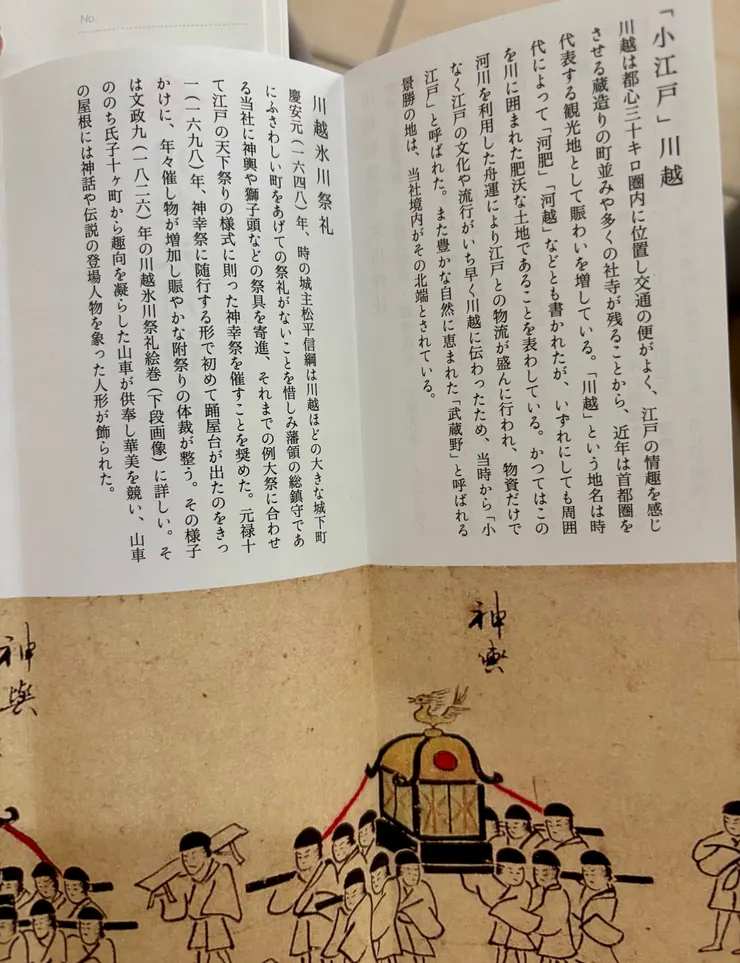 「小江戸」川越
川越は都心三十キロ圏内に位置し交通の便がよく、江戸の情趣を感じ
させる蔵造りの町並みや多くの社寺が残ることから、近年は首都圏を
代表する観光地として賑わいを増している。「川越」という地名は時
代によって「河肥」「河越」などとも書かれたが、いずれにしても周囲
を川に囲まれた肥沃な土地であることを表わしている。かつてはこの
河川を利用した舟運により江戸との物流が盛んに行われ、物資だけで
なく江戸の文化や流行がいち早く川越に伝わったため、当時から「小
江戸」と呼ばれた。また豊かな自然に恵まれた「武蔵野」と呼ばれる
景勝の地は、当社境内がその北端とされている。
川越氷川祭礼
慶安元(一六四八)年、時の城主松平信綱は川越ほどの大きな城下町
にふさわしい町をあげての祭礼がないことを惜しみ藩領の総鎮守であ
る当社に神輿や獅子頭などの祭具を寄進、それまでの例大祭に合わせ
て江戸の天下祭りの様式に則った神幸祭を催すことを奨めた。元禄十
一(一六九八)年、神幸祭に随行する形で初めて踊屋台が出たのをきっ
かけに、年々催し物が増加し賑やかな附祭りの体裁が整う。その様子
は文政九(一八二六)年の川越氷川祭礼絵巻(下段画像)に詳しい。そ
ののち氏子十ヶ町から趣向を凝らした山車が供奉し華美を競い、山車
の屋根には神話や伝説の登場人物を象った人形が飾られた。
神輿
神輿
No.